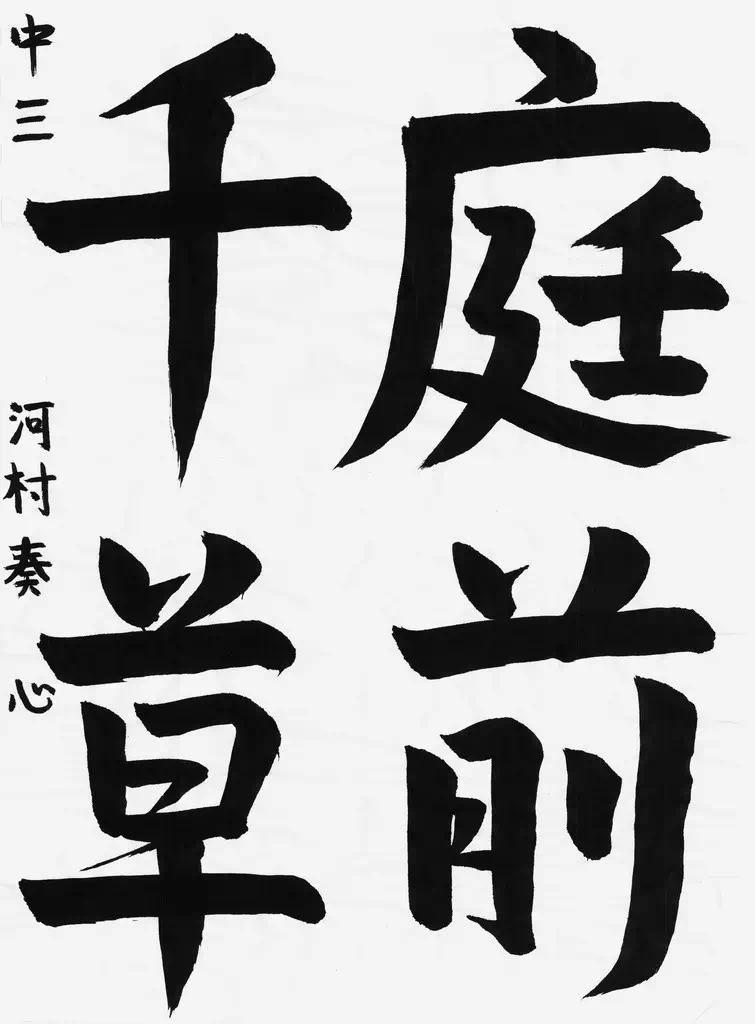 庭前
千草
中三 河村奏心